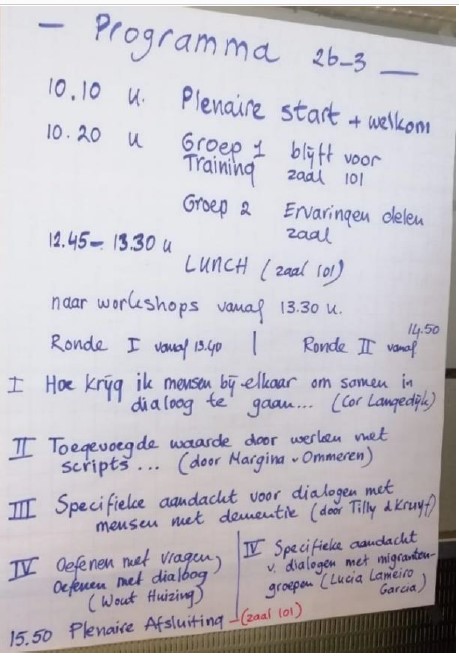 — Programma 26-3 —
10.10 u. Plenaire start + welkom
10.20 u Groep 1 blijft voor
Training zaal 101
Groep 2 Ervaringen delen
zaal
12.45 - 13.30 u
LUNCH (zaal 101)
naar workshops vanaf 13.30 u.
14.50
Ronde I vanaf 13.40 | Ronde II vanaf
I Hoe krijg ik mensen bij elkaar om samen in
dialoog te gaan... (Cor Langedijk)
II Toegevoegde waarde door werken met
scripts... (door Margina v Ommeren)
III Specifieke aandacht voor dialogen met
mensen met dementie (door Tilly d Kruyf)
IV Oefenen met vragen,
Oefenen met dialoog
(Wout Huizing)
IV Specifieke aandacht
v. dialogen met migranten-
groepen (Lucia Lameiro
Garcia)
15.50 Plenaire Afsluiting - (zaal 101)